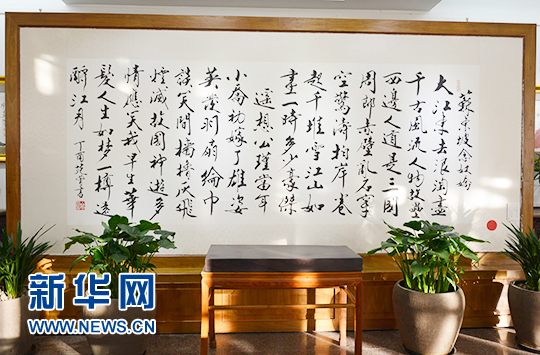 蘇東坡念奴嬌
大江東去浪淘盡
千古風流人物故壘
西邊人道是三國
周郎赤壁亂石穿
空驚濤拍岸卷
起千堆雪江山如
畫一時多少豪傑
遥想公瑾當年
小喬初嫁了雄姿
英發羽扇綸巾
談笑間檣櫓灰飛
煙滅故國神遊多
情應笑我早生華
髮人生如夢一樽還
酹江月 丁酉 書
新华网
WWW.NEWS.CN